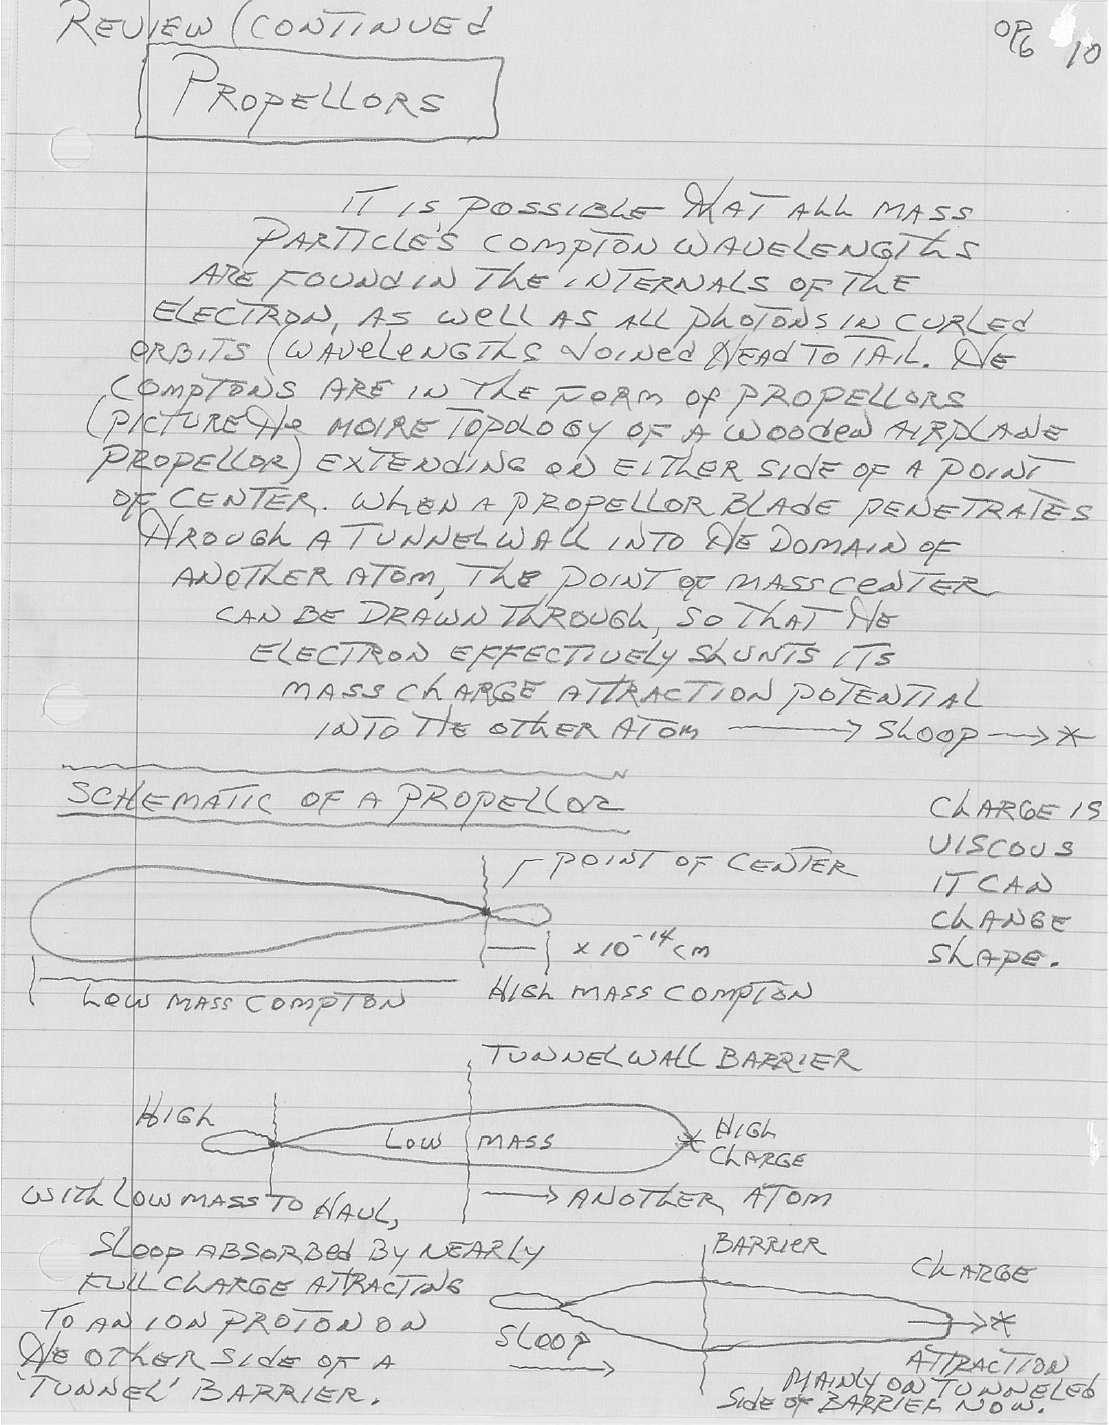 REVIEW (CONTINUED
OP6 10
PROPELLORS
IT IS POSSIBLE THAT ALL MASS
PARTICLE'S COMPTON WAVELENGTHS
ARE FOUND IN THE INTERNALS OF THE
ELECTRON, AS WELL AS ALL PHOTONS IN CURLED
ORBITS (WAVELENGTHS JOINED HEAD TO TAIL. THE
COMPTONS ARE IN THE FORM OF PROPELLORS
(PICTURE THE MOIRE TOPOLOGY OF A WOODEN AIRPLANE
PROPELLOR) EXTENDING ON EITHER SIDE OF A POINT
OF CENTER. WHEN A PROPELLOR BLADE PENETRATES
THROUGH A TUNNEL WALL INTO THE DOMAIN OF
ANOTHER ATOM, THE POINT OF MASS CENTER
CAN BE DRAWN THROUGH, SO THAT THE
ELECTRON EFFECTIVELY SHUNTS ITS
MASS CHARGE ATTRACTION POTENTIAL
INTO THE OTHER ATOM ⟶ SLOOP ⟶ *
SCHEMATIC OF A PROPELLOR
CHARGE IS
VISCOUS
IT CAN
CHANGE
SHAPE.
POINT OF CENTER
x 10⁻¹⁴ cm
LOW MASS COMPTON
HIGH MASS COMPTON
TUNNEL WALL BARRIER
HIGH
LOW MASS
HIGH
CHARGE
⟶ ANOTHER ATOM
WITH LOW MASS TO HAUL,
SLOOP ABSORBED BY NEARLY
FULL CHARGE ATTRACTING
TO AN ION PROTON ON
THE OTHER SIDE OF A
'TUNNEL' BARRIER.
BARRIER
CHARGE
⟶ *
SLOOP
ATTRACTION
MAINLY ON TUNNELED
SIDE OF BARRIER NOW.